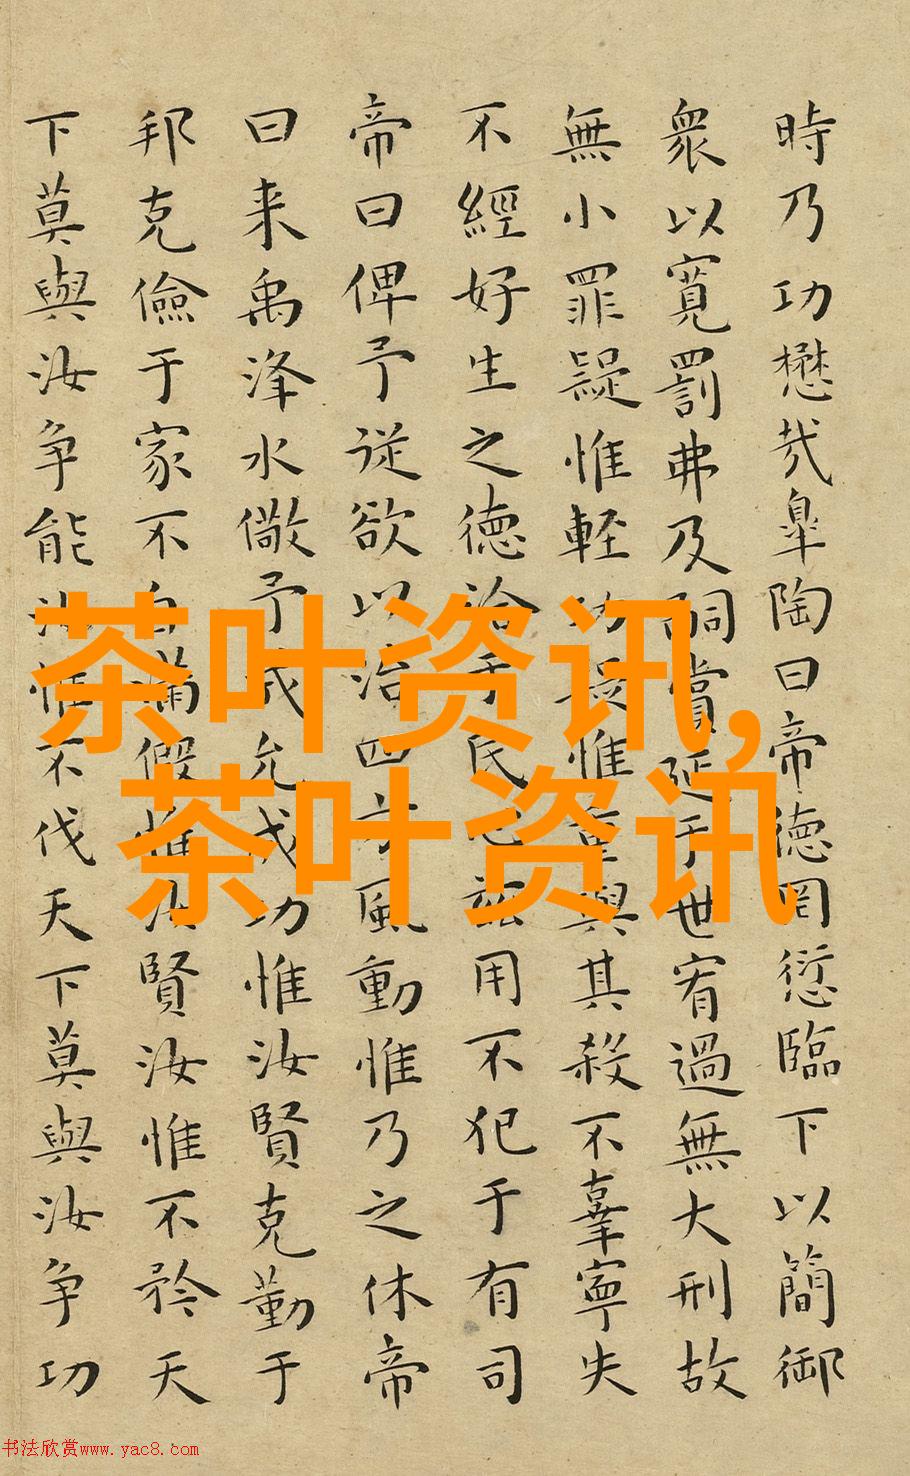 時乃功懋哉皐陶曰帝德罔愆臨下以簡御
衆以寬罰弗及嗣賞延于世宥過無大刑故
無小罪疑惟輕功疑惟重與其殺不辜寧失
不經好生之德洽于民心兹用不犯于有司
帝曰俾予從欲以治四方風動惟乃之休帝
曰来禹洚水儆予成允成功惟汝賢克勤于
邦克儉于家不自滿假惟汝賢汝惟不矜天
下莫與汝争能汝惟不伐天下莫與汝争功
茶叶资讯,
茶叶资讯,
书法欣赏www.yac8.com